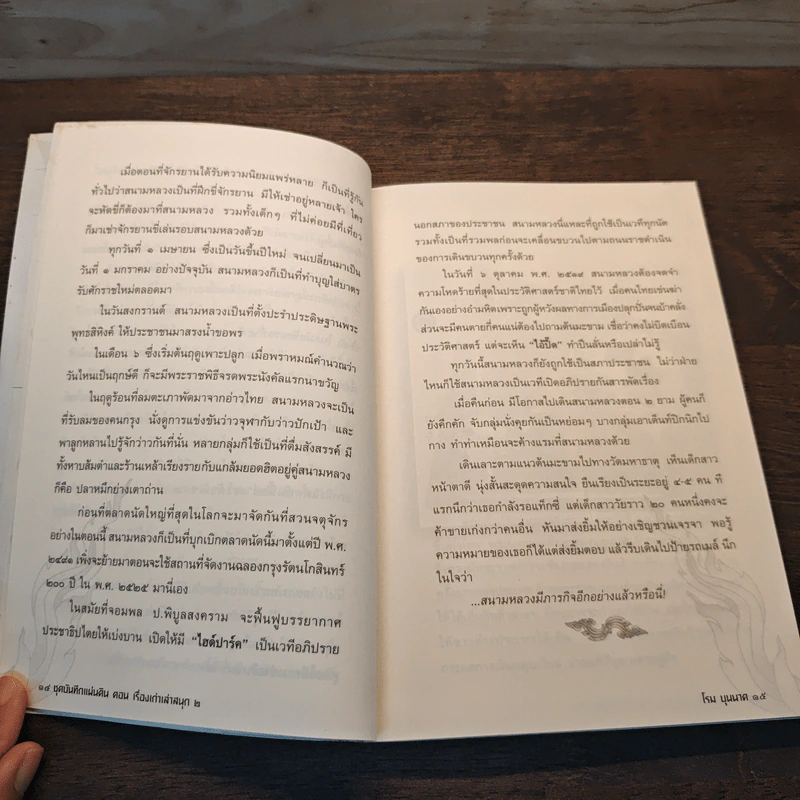 เมื่อตอนที่จักรยานได้รับความนิยมแพร่หลาย ก็เป็นที่รู้กัน
ทั่วไปว่าสนามหลวงเป็นที่ฝึกขี่จักรยาน มีให้เช่าอยู่หลายเจ้า ใคร
จะหัดขี่ก็ต้องมาที่สนามหลวง รวมทั้งเด็กๆ ที่ไม่ค่อยมีที่เที่ยว
ก็มาเช่าจักรยานขี่เล่นรอบสนามหลวงด้วย
ทุกวันที่ ๑ เมษายน ซึ่งเป็นวันขึ้นปีใหม่ จนเปลี่ยนมาเป็น
วันที่ ๑ มกราคม อย่างปัจจุบัน สนามหลวงก็เป็นที่ทำบุญใส่บาตร
รับศักราชใหม่ตลอดมา
ในวันสงกรานต์ สนามหลวงเป็นที่ตั้งปะรำประดิษฐานพระ
พุทธสิหิงค์ ให้ประชาชนมาสรงน้ำขอพร
ในเดือน ๖ ซึ่งเริ่มต้นฤดูเพาะปลูก เมื่อพราหมณ์คำนวณว่า
วันไหนเป็นฤกษ์ดี ก็จะมีพระราชพิธีจรดพระนังคัลแรกนาขวัญ
ในฤดูร้อนที่ลมตะเภาพัดมาจากอ่าวไทย สนามหลวงจะเป็น
ที่รับลมของคนกรุง นั่งดูการแข่งขันว่าวจุฬากับว่าวปักเป้า และ
พาลูกหลานไปรู้จักว่าวกันที่นั่น หลายกลุ่มก็ใช้เป็นที่ดื่มสังสรรค์ มี
ทั้งหาบส้มตำและร้านเหล้าเรียงรายกับแกล้มยอดฮิตอยู่คู่สนามหลวง
ก็คือ ปลาหมึกย่างเตาถ่าน
ก่อนที่ตลาดนัดใหญ่ที่สุดในโลกจะมาจัดกันที่สวนจตุจักร
อย่างในตอนนี้ สนามหลวงก็เป็นที่บุกเบิกตลาดนัดนี้มาตั้งแต่ปี พ.ศ.
๒๔๙๑ เพิ่งจะย้ายมาตอนจะใช้สถานที่จัดงานฉลองกรุงรัตนโกสินทร์
๒๐๐ ปี ใน พ.ศ. ๒๕๒๕ มานี่เอง
ในสมัยที่จอมพล ป.พิบูลสงคราม จะฟื้นฟูบรรยากาศ
ประชาธิปไตยให้เบ่งบาน เปิดให้มี “ไฮด์ปาร์ค” เป็นเวทีอภิปราย
๑๔ ชุดบันทึกแผ่นดิน ตอน เรื่องเก่าเล่าสนุก ๒
นอกสภาของประชาชน สนามหลวงนี่แหละที่ถูกใช้เป็นเวทีทุกนัด
รวมทั้งเป็นที่รวมพลก่อนจะเคลื่อนขบวนไปตามถนนราชดำเนิน
ของการเดินขบวนทุกครั้งด้วย
ในวันที่ ๖ ตุลาคม พ.ศ. ๒๕๑๙ สนามหลวงต้องจดจำ
ความโหดร้ายที่สุดในประวัติศาสตร์ชาติไทยไว้ เมื่อคนไทยเข่นฆ่า
กันเองอย่างอำมหิตเพราะถูกผู้หวังผลทางการเมืองปลุกปั่นจนบ้าคลั่ง
ส่วนจะมีคนตายกี่คนแน่ต้องไปถามต้นมะขาม เชื่อว่าคงไม่บิดเบือน
ประวัติศาสตร์ แต่จะเห็น “ไอ้ปื๊ด” ทำปืนลั่นหรือเปล่าไม่รู้
ทุกวันนี้สนามหลวงก็ยังถูกใช้เป็นสภาประชาชน ไม่ว่าฝ่าย
ไหนก็ใช้สนามหลวงเป็นเวทีเปิดอภิปรายกันสารพัดเรื่อง
เมื่อคืนก่อน มีโอกาสไปเดินสนามหลวงตอน ๒ ยาม ผู้คนก็
ยังคึกคัก จับกลุ่มนั่งคุยกันเป็นหย่อมๆ บางกลุ่มเอาเต็นท์ปิกนิกไป
กาง ทำท่าเหมือนจะค้างแรมที่สนามหลวงด้วย
เดินเลาะตามแนวต้นมะขามไปทางวัดมหาธาตุ เห็นเด็กสาว
หน้าตาดี นุ่งสั้นสะดุดความสนใจ ยืนเรียงเป็นระยะอยู่ ๔-๕ คน ที
แรกนึกว่าเธอกำลังรอแท็กซี่ แต่เด็กสาววัยราว ๒๐ คนหนึ่งคงจะ
ค้าขายเก่งกว่าคนอื่น หันมาส่งยิ้มให้อย่างเชิญชวนเจรจา พอรู้
ความหมายของเธอก็ได้แต่ส่งยิ้มตอบ แล้วรีบเดินไปป้ายรถเมล์ นึก
ในใจว่า
...สนามหลวงมีภารกิจอีกอย่างแล้วหรือนี่!
โรม บุนนาค ๑๕